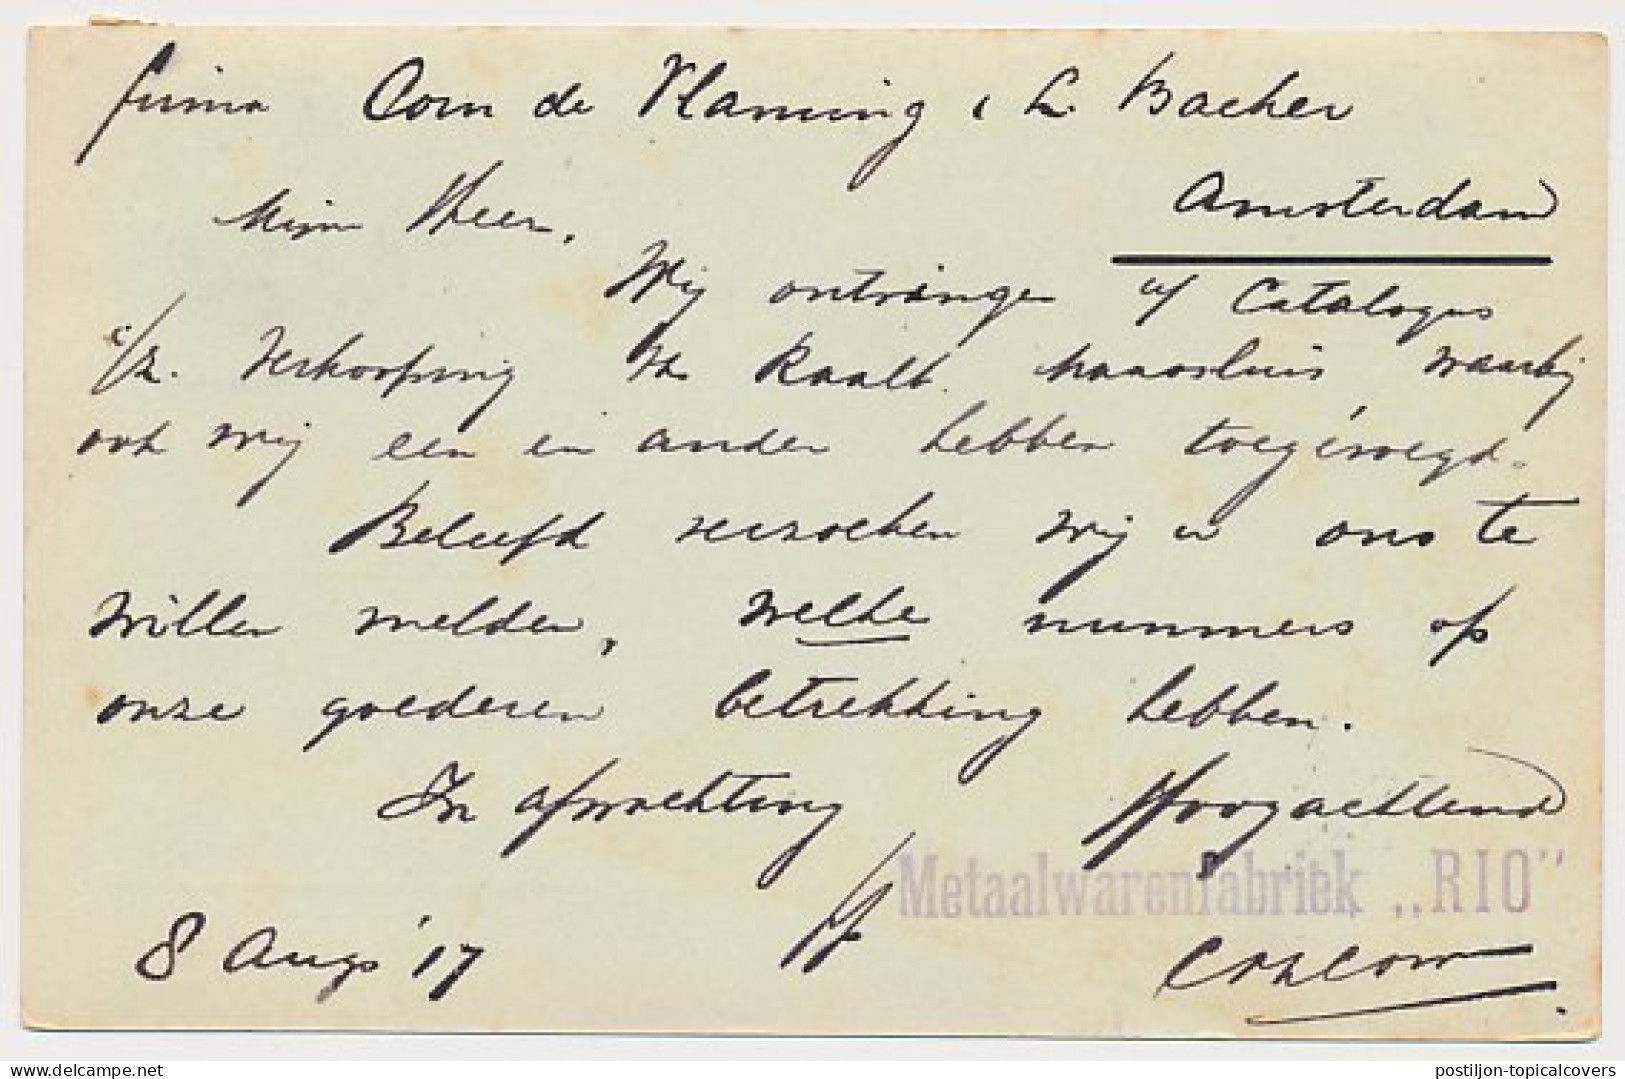 firma Corn de Vlaming & L. Bacher
Amsterdam
Mijne Heeren,
Wij ontvingen Catalogus
Verkooping Kaalt Maassluis waarbij
ook wij een en ander hebben toegevoegd.
Beleefd verzoeken wij u ons te
willen melden, welke nummers op
onze goederen betrekking hebben.
In afwachting Hoogachtend
Metaalwarenfabriek „RIO”
8 Augs '17
postiljon-topicalcovers